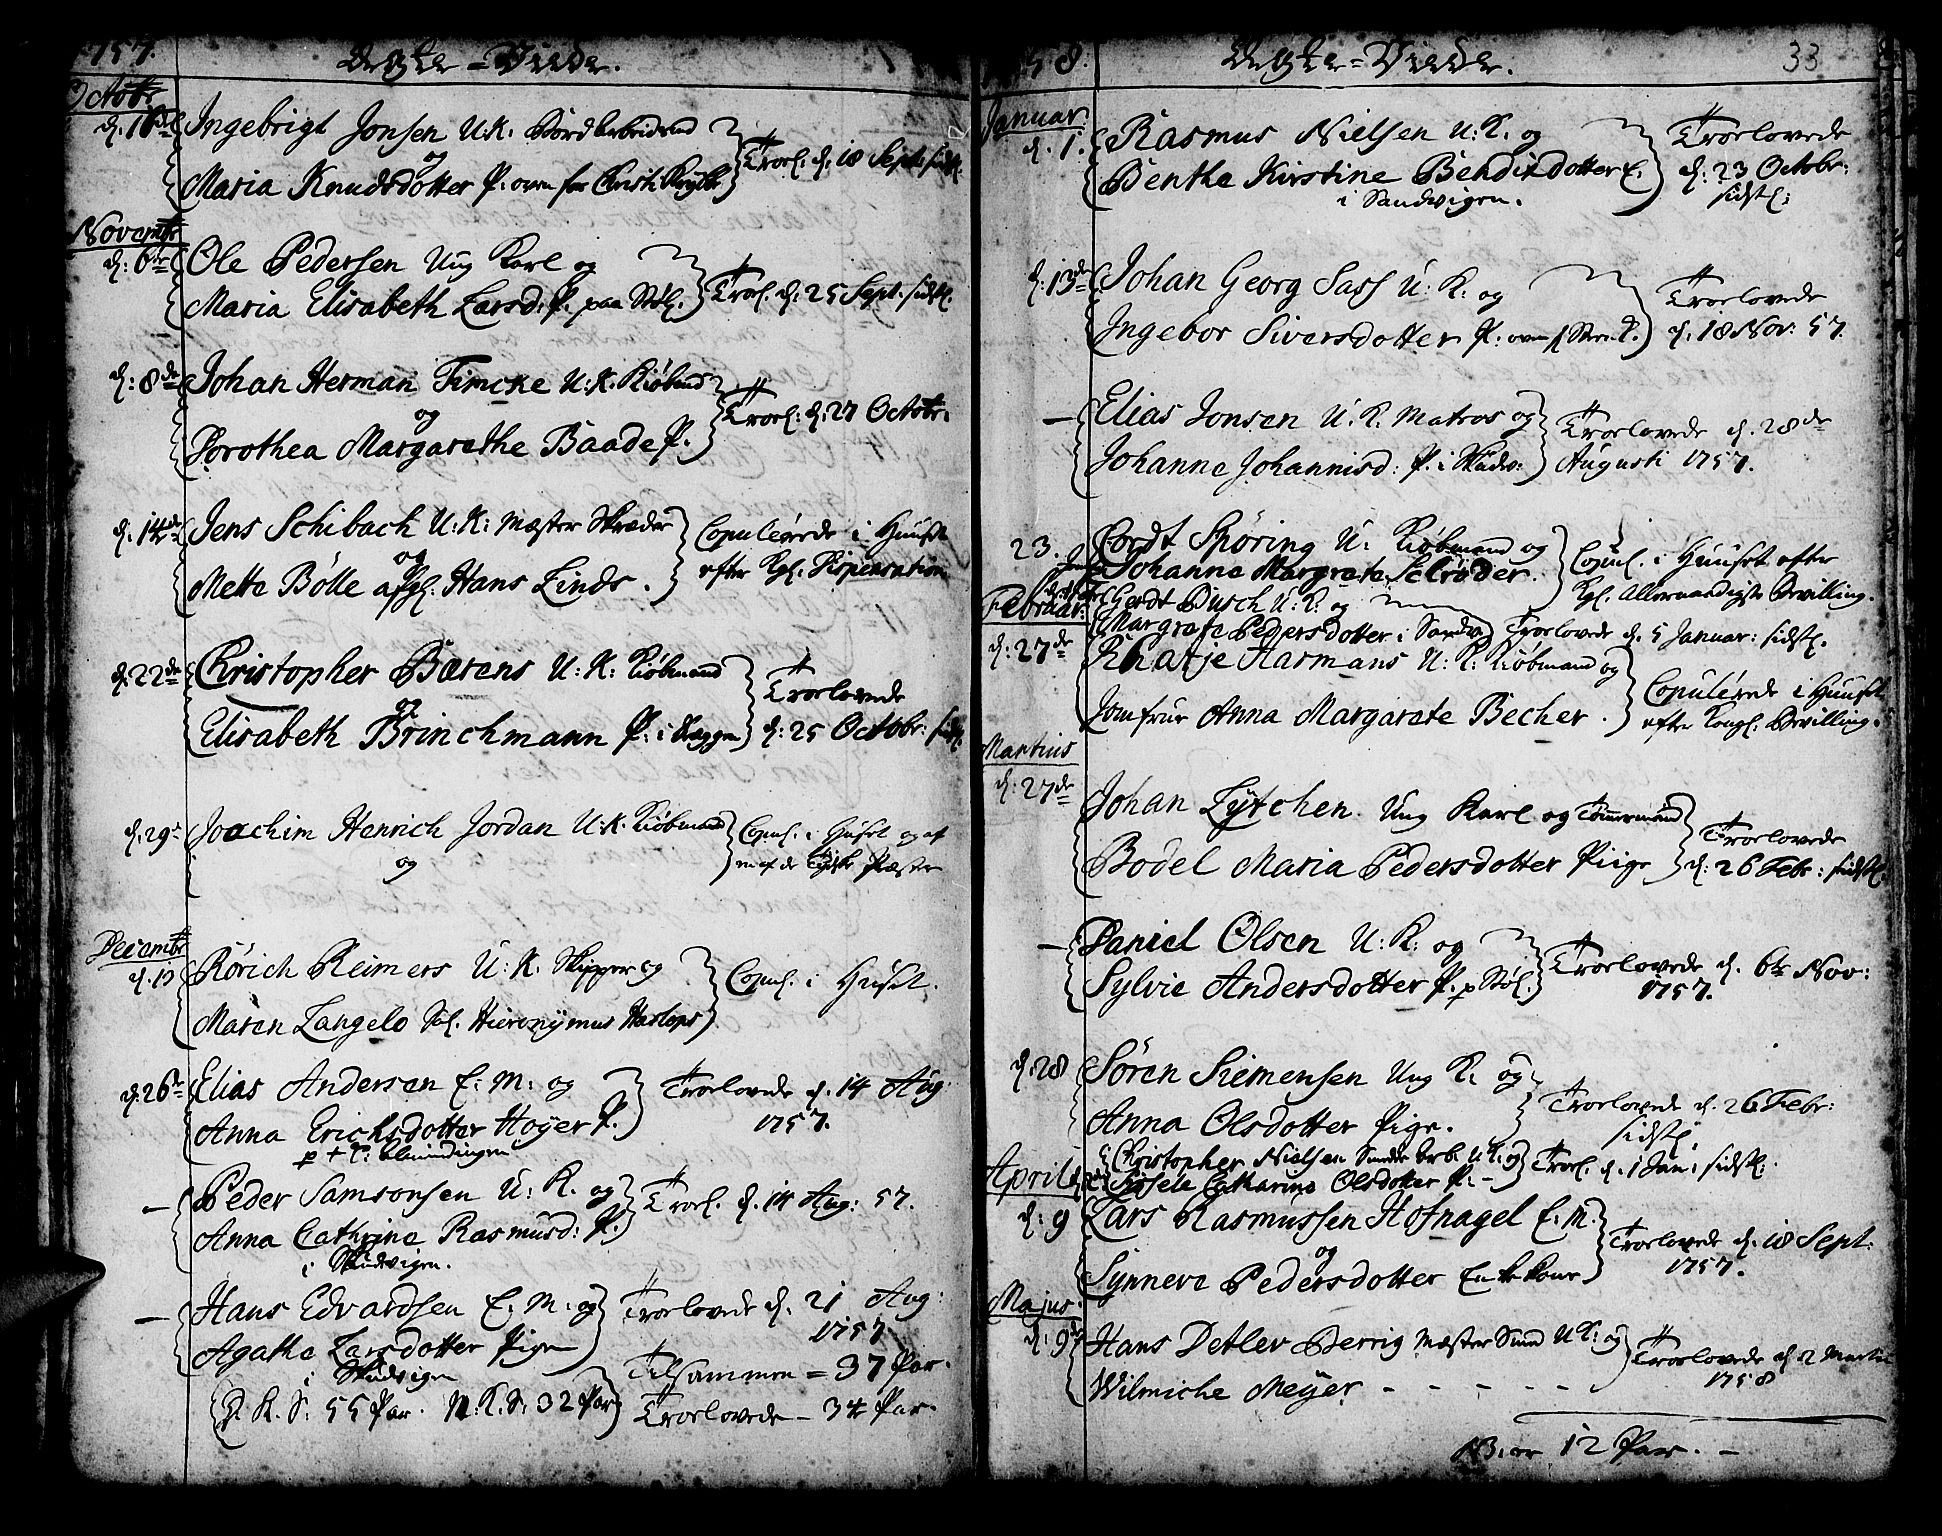 1757.
Ægte-Viede.
Octobr
d. 16de Ingebrigt Jonsen U: K:
og
Maria Knudsdotter P.
Troel. d. 18 Sept: sidstl.
Novembr
d: 6te Ole Pedersen Ung Karl og
Maria Elisabeth Larsd: P. paa Støl.
Troel. d: 25 Sept: sidstl.
d: 8de Johan Herman Timcke U: K. Kiøbmd
og
Dorothea Margarethe Baade P.
Troel: d: 27 Octobr:
d. 14de Jens Schibach U: K: Mæster Skræder
og
Mette Bölle afgl. Hans Linds.
Copuleerede i Huuset
efter Kgl. Dispensation
d. 22de Christopher Bærens U: K: Kiøbmand
og
Elisabeth Brinchmann P: i Skeggen
Troelovede
d: 25 Octobr: sidstl.
d. 29de Joachim Henrich Jordan U: K. Kiøbmand
og
Copul. i Huset og af
en af de Tydske Præster
Decembr
d. 13 Rörich Reimers U. K. Skipper og
Maren Langelo Sal. Hieronÿmus Harlops
Copul. i Huset.
d. 26de Elias Andersen E: M: og
Anna Erichsdotter Hoÿer P.
p + C: Almindingen
Troelovede d. 14 Aug.
1757.
— Peder Samsonsen U: K. og
Anna Cathrine Rasmusd: P.
i Skudvigen.
Troel. d. 14 Aug: 57.
— Hans Edvardsen E. M: og
Agathe Larsdotter Pige
i Skudvigen
Troelovede d. 21 Aug:
1757
D. K. S: 55 Par. N. K. S: 32 Par
Tilsammen = 37 Par.
Troelovede — 34 Par.
1758.
Ægte-Viede.
33
Januar.
d. 1. Rasmus Nielsen U. K. og
Benthe Kirstine Bendixdotter E.
i Sandvigen.
Troelovede
d. 23 Octobr:
sidstl:
d. 13de Johan Georg Sass U: K: og
Ingebor Siversdotter P:
Troelovede
d. 18 Nov: 57.
— Elias Jonsen U. K. Matros og
Johanne Johannisd: P. i Skudv:
Troelovede d. 28de
Augusti 1757.
23. Cordt Spöring U: Kiøbmand og
Johanna Margrete Schröder.
Copul. i Huuset efter
Kgl. Allernaadigste Bevilling.
Februar: Gerdt Busch U: K. og
Margrete Pedersdotter i Sandv
Troelovede d. 5 Januar: sidstl.
d: 27de Harmans U. K. Kiøbmand og
Jomfrue Anna Margarete Becher.
Copulerede i Huuset
efter Kongl. Bevilling.
Martius
d: 27de Johan Lÿtchen Ung Karl og Tømmermand
Bodel Maria Pedersdotter Piige
Troelovede
d. 26 Febr: sidstl.
— Daniel Olsen U: K: og
Sylvie Andersdotter P. p Støl.
Troelovede d. 6te Nov:
1757.
d. 28 Sören Siemensen Ung K: og
Anna Olsdotter Pige.
Troelovede d. 26 Febr:
sidstl.
Christopher Nielsen U. K: og
Gisele Catharina Olsdotter P: -
Troel. d. 1 Jan: sidstl.
Aprilis
d: 9 Lars Rasmussen Hofnagel E: M.
og
Synneve Pedersdotter Enkekone
Troelovede d. 18 Sept:
1757.
Majus.
d: 9de Hans Detlev Berrig Mæster Smed U: K: og
Wilmiche Meÿer - - - - - -
Troelovede d. 2 Martii
1758
NB. er 12 Par. -